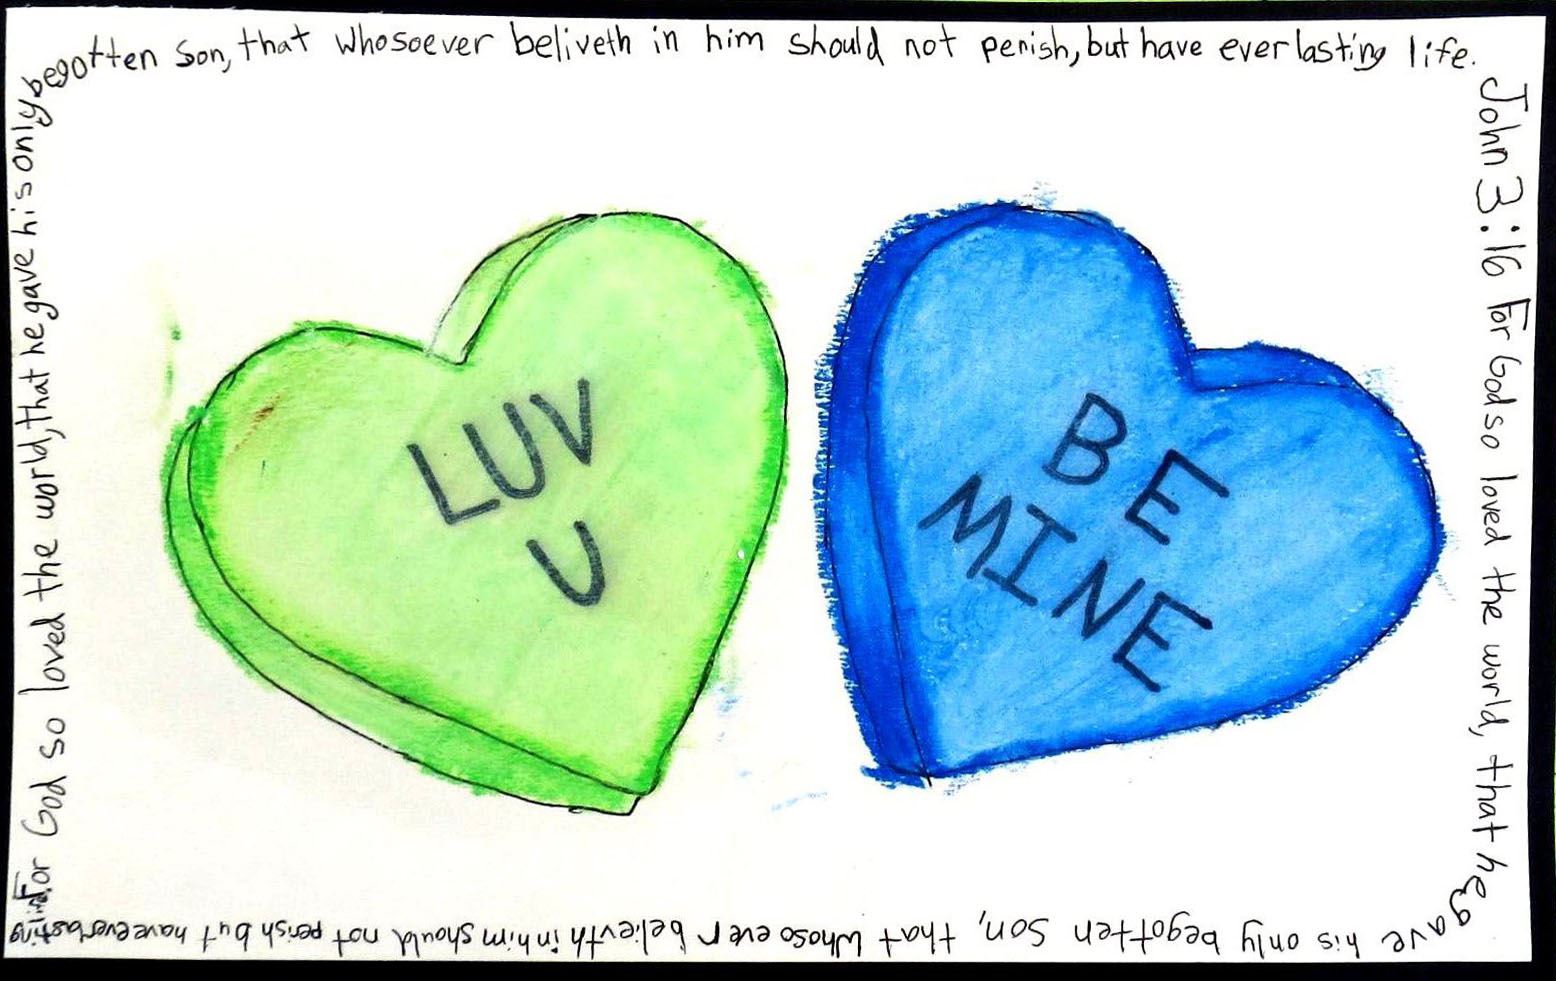 For God so loved the world, that he gave his only
begotten Son, that whosoever beliveth in him should not perish, but have everlasting life.
John 3:16 For God so loved the world, that he
gave his only begotten Son, that whosoever believth in him should not perish but have everlasting
life.
LUV
U
BE
MINE